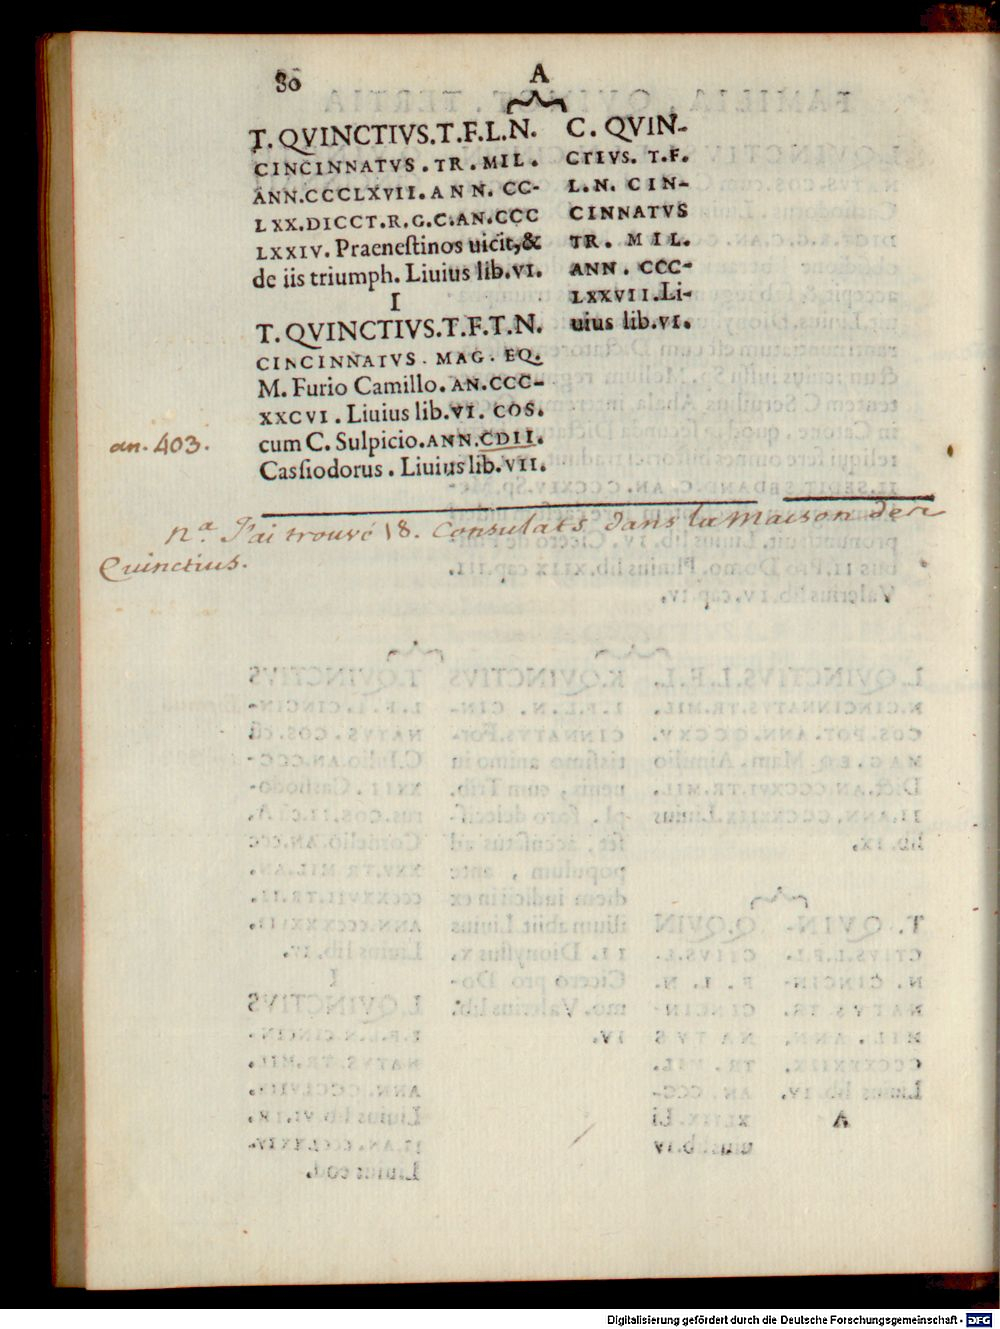 80
A
T. QVINCTIVS.T.F.L.N.
CINCINNATVS . TR . MIL .
ANN.CCCLXVII. ANN. CC-
LXX.DICCT.R.G.C.AN.CCC
LXXIV. Praeneſtinos uicit,&
de iis triumph. Liuius lib.VI.
I
T. QVINCTIVS.T.F.T.N.
CINCINNATVS . MAG. EQ.
M. Furio Camillo. AN.CCC-
XXCVI . Liuius lib.VI. COS.
cum C. Sulpicio.ANN.CDII.
Caſſiodorus . Liuius lib. VII.
C. QVIN-
CTIVS. T.F.
L.N. CIN-
CINNATVS
TR. MIL.
ANN . CCC-
LXXVII.Li-
uius lib.VI.
an. 403.
nᵃ. J'ai trouvé 18. Consulats dans la Maison des
Quinctius.
Digitalisierung gefördert durch die Deutsche Forschungsgemeinschaft - DFG